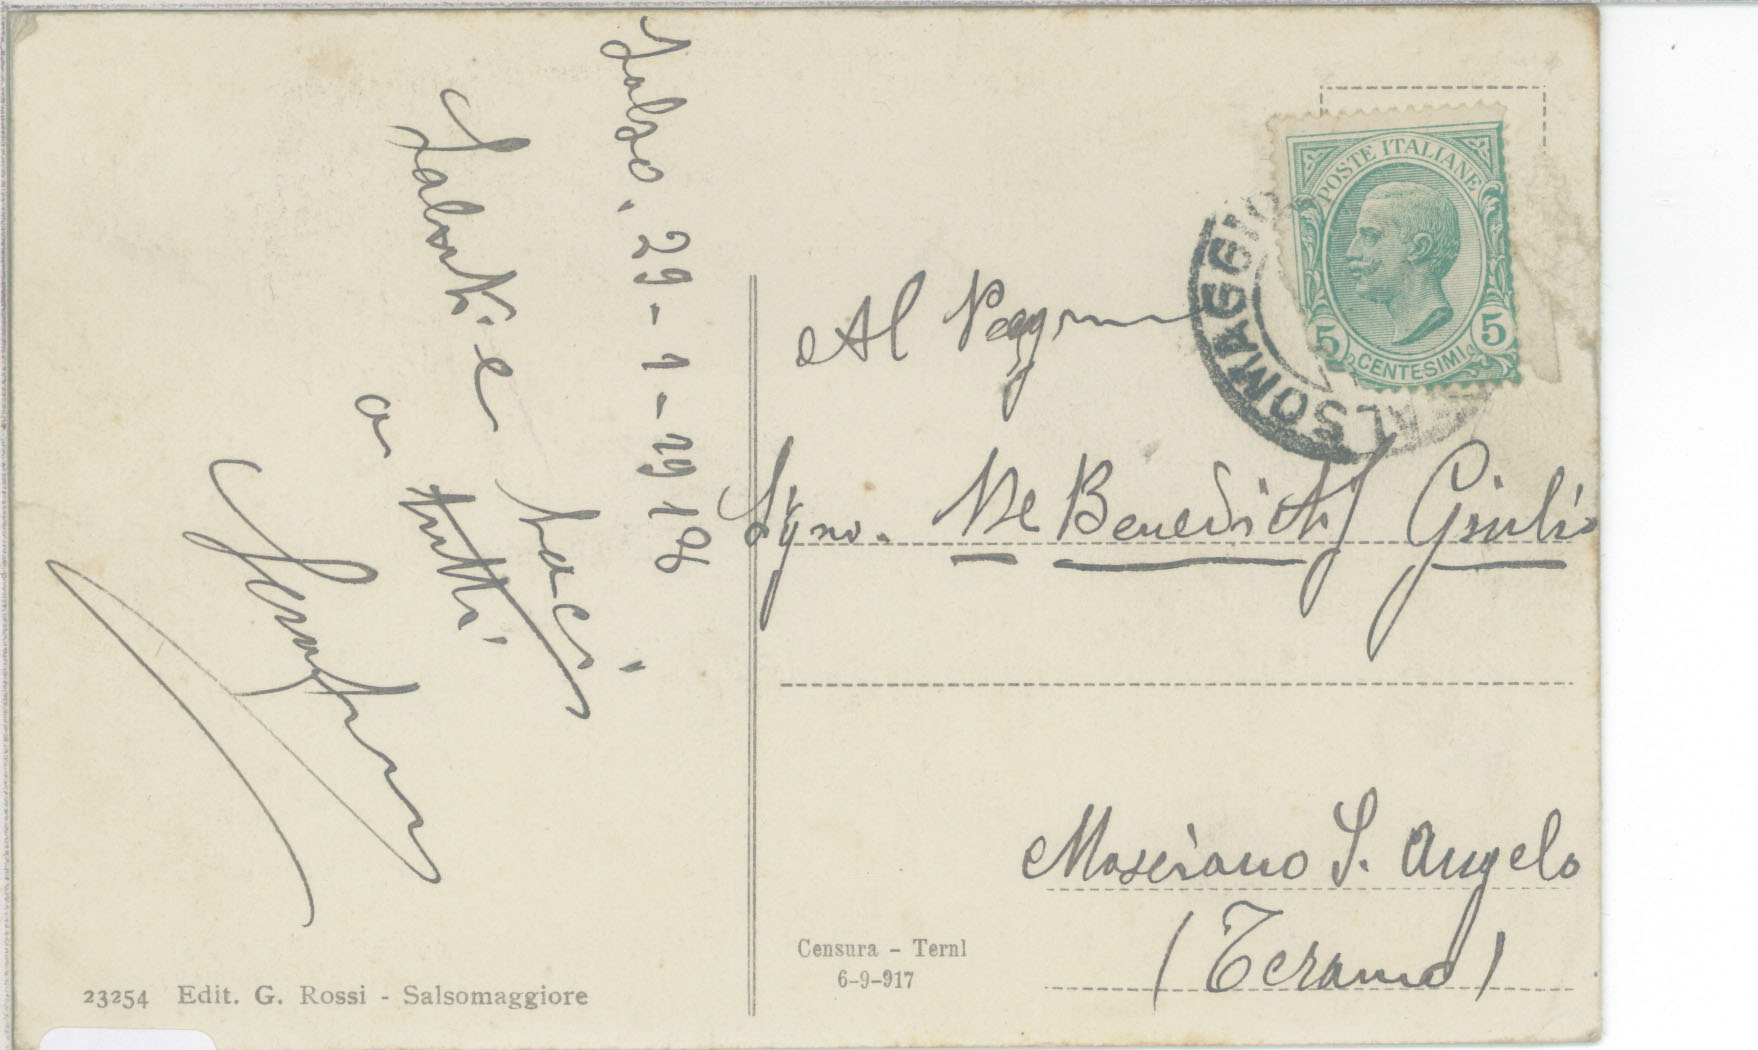 Salso. 29-1-1918
Saluti e baci
a tutti
Serafino
Al
Signo. De Benedictis Giulio
Mosciano S. Angelo
(Teramo)
POSTE ITALIANE
5 CENTESIMI 5
SALSOMAGGIORE
Censura - Terni
6-9-917
23254 Edit. G. Rossi - Salsomaggiore